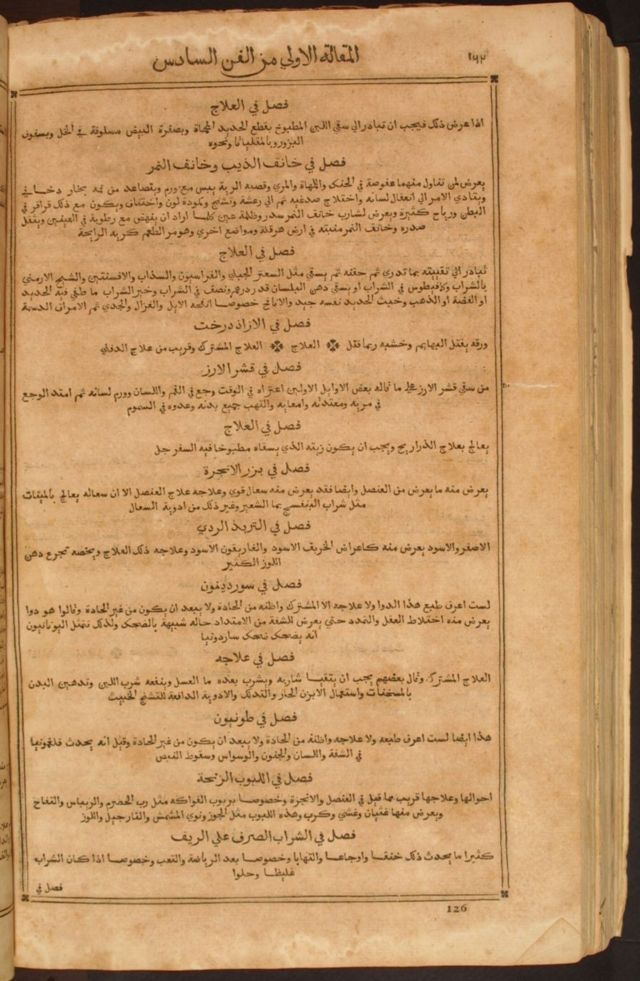 ١٤٢
المقالة الاولي من الفن السادس
فصل في العلاج
اذا عرض ذلك فيجب ان تبادر الي سقي اللبن المطبوخ بقطع الحديد المحماة وبصفرة البيض مسلوقة في الخل ويسقون
البزور وبالمقلياثا ونحوه
فصل في خانق الذيب وخانق النمر
يعرض لمن تناول منهما عفوصة في الحنك واللهاة والمري وقصبة الرية يبس مع ورم ويتصاعد من فمه بخار دخاني
ويتادي الامر الي انعقال لسانه واختلاج صدغيه ثم الي رعشة وتشنج وكمودة لون واختناق ويكون مع ذلك قراقر في
البطن ورياح كثيرة ويعرض لشارب خانق النمر سدر وظلمة عين كلما اراد ان ينهض مع رطوبة في العينين ويثقل
صدره وخانق النمر منبته في ارض هرقلة ومواضع اخري وهو مر الطعم كريه الرايحة
فصل في العلاج
تبادر الي تقيئته بما تدري ثم حقنه ثم يسقي مثل السعتر الجبلي والفراسيون والسذاب والافسنتين والشيح الارمني
بالشراب وكمافيطوس في الشراب او يسقي دهن البلسان قدر درهم ونصف في الشراب وخير الشراب ما طفي فيه الحديد
او الفضة او الذهب وخبث الحديد نفسه جيد والانافح خصوصا انفحة الايل والغزال والجدي ثم الامراق الدسمة
فصل في الازاد درخت
ورقه يقتل البهايم وخشبه ربما قتل العلاج العلاج المشترك وقريب من علاج الدفلي
فصل في قشر الارز
من سقي قشر الارز علي ما قاله بعض الاوايل الاولين اعتراه في الوقت وجع في الفم واللسان وورم لسانه ثم امتد الوجع
في مريه ومعدته وامعايه والتهب جميع بدنه وعدوه في السموم
فصل في العلاج
يعالج بعلاج الذراريح ويجب ان يكون زيته الذي يسقاه مطبوخا فيه السفرجل
فصل في بزر الانجرة
يعرض منه ما يعرض من العنصل وايضا فقد يعرض منه سعال قوي وعلاجه علاج العنصل الا ان سعاله يعالج بالملينات
مثل شراب البنفسج بما الشعير وغير ذلك من ادوية السعال
فصل في التربد الردي
الاصفر والاسود يعرض منه كاعراض الخربق الاسود والغاريقون الاسود وعلاجه ذلك العلاج ويخصه تجرع دهن
اللوز الكثير
فصل في سوردينون
لست اعرف طبع هذا الدوا ولا علاجه الا المشترك واظنه من الحادة ولا يبعد ان يكون من غير الحادة وقالوا هو دوا
يعرض منه اختلاط العقل والتمدد حتي يعرض للشفة من الامتداد حالة شبيهة بالضحك ولذلك تتمثل اليونانيون
انه يضحك ضحك ساردونيا
فصل في علاجه
العلاج المشترك وقال بعضهم يجب ان يتقيا شاربه ويشرب بعده ما العسل وينفعه شرب اللبن وتدهين البدن
بالمسخنات واستعمال الابزن الحار والتدلك والادوية الدافعة للتشنج الخبيث
فصل في طونيون
هذا ايضا لست اعرف طبعه ولا علاجه واظنه من الحادة ولا يبعد ان يكون من غير الحادة وقيل انه يحدث فلغمونيا
في الشفة واللسان والجنون والوسواس وسقوط النبض
فصل في اللبوب الزنخة
احوالها وعلاجها قريب مما قيل في العنصل والانجرة وخصوصا بربوب الفواكه مثل رب الحصرم والريباس والتفاح
ويعرض منها غثيان وغشي وكرب وهذه اللبوب مثل الجوز ونوي المشمش والنارجيل واللوز
فصل في الشراب الصرف علي الريق
كثيرا ما يحدث ذلك خنقا واوجاعا والتهابا وخصوصا بعد الرياضة والتعب وخصوصا اذا كان الشراب
غليظا وحلوا
فصل في
126